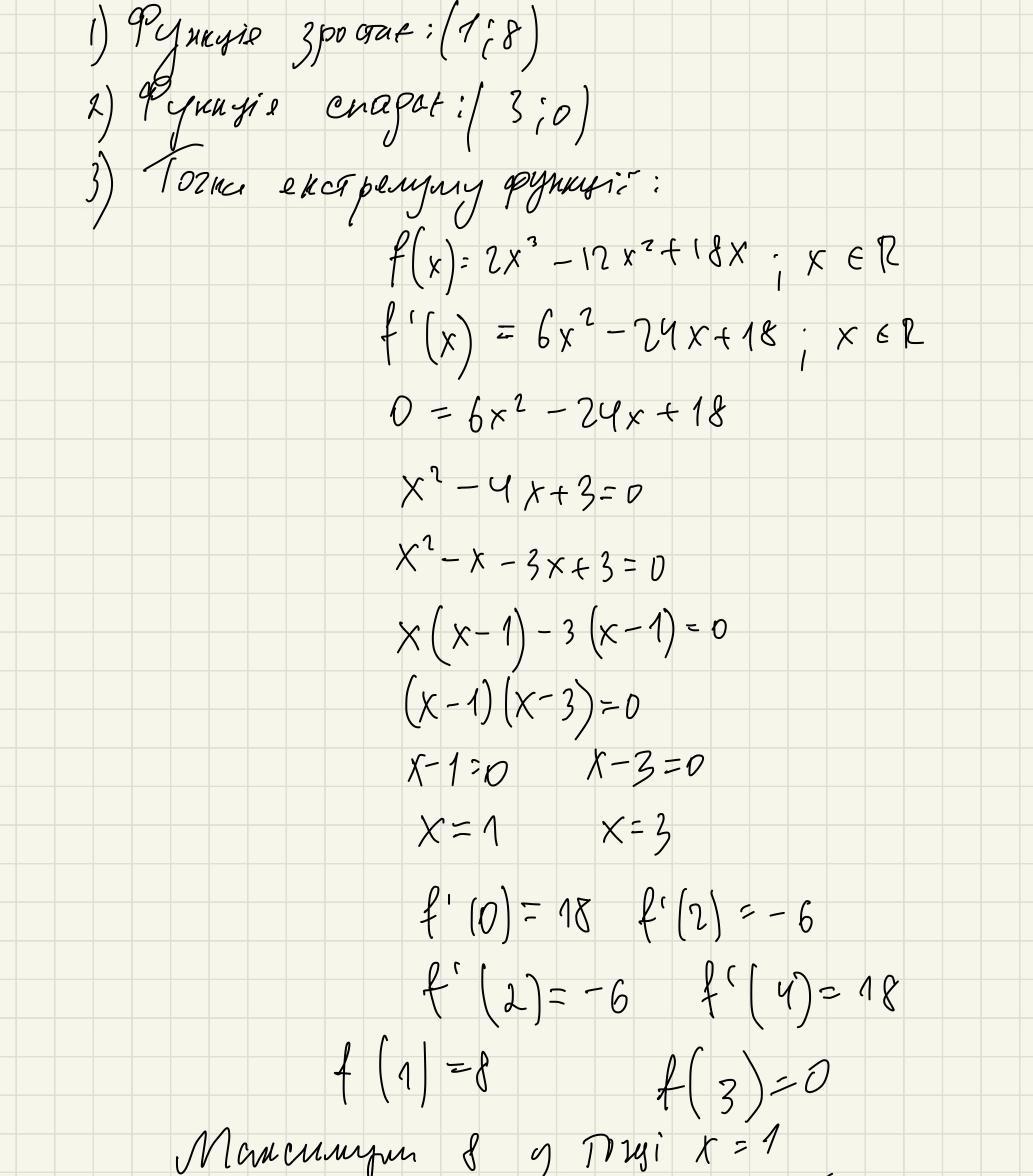 1) Функція зростає: (1;8)
2) Функція спадає: (3;0)
3) Точки екстремуму функції:
f(x) = 2x³ - 12x² + 18x ; x ∈ R
f'(x) = 6x² - 24x + 18 ; x ∈ R
0 = 6x² - 24x + 18
x² - 4x + 3 = 0
x² - x - 3x + 3 = 0
x(x-1) - 3(x-1) = 0
(x-1)(x-3) = 0
x-1=0 x-3=0
x=1 x=3
f'(0) = 18 f'(2) = -6
f'(2) = -6 f'(4) = 18
f(1) = 8 f(3) = 0
Максимум 8 у точці x = 1